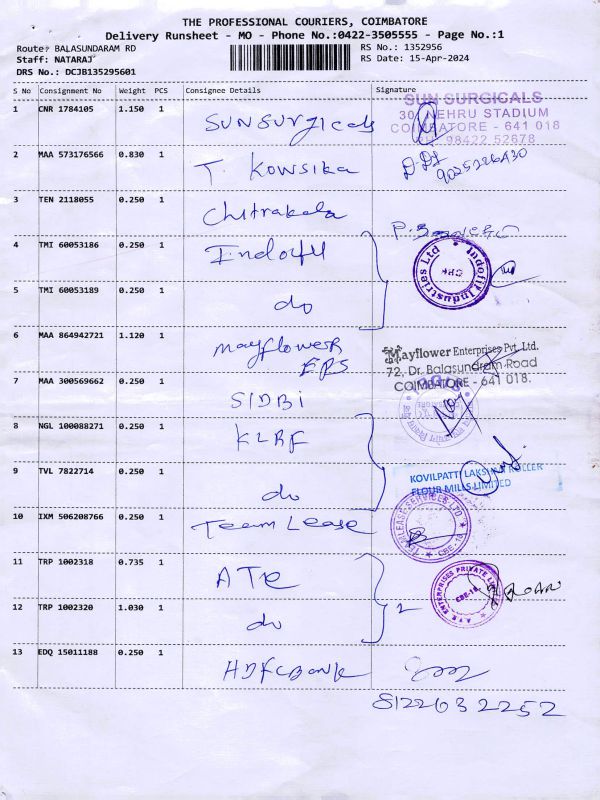 THE PROFESSIONAL COURIERS, COIMBATORE
Delivery Runsheet - MO - Phone No.:0422-3505555 - Page No.:1
Route: BALASUNDARAM RD
RS No.: 1352956
Staff: NATARAJ
RS Date: 15-Apr-2024
DRS No.: DCJB135295601
S No Consignment No Weight PCS Consignee Details Signature
1 CNR 1784105 1.150 1 SUNSURGICALS
SUN SURGICALS
30, NEHRU STADIUM
COIMBATORE - 641 018
PH: 98422 52678
2 MAA 573176566 0.830 1 T. KOWSIKA
3 TEN 2118055 0.250 1 Chitrakala
4 TMI 60053186 0.250 1 Indofil
Indofil Industries Ltd
5 TMI 60053189 0.250 1 do
6 MAA 864942721 1.120 1 Mayflower
EPS
Mayflower Enterprises Pvt. Ltd.
72, Dr. Balasundram Road
COIMBATORE - 641 018.
7 MAA 300569662 0.250 1 SIDBI
8 NGL 100088271 0.250 1 KLRF
9 TVL 7822714 0.250 1 do
KOVILPATTI LAKSHMI ROLLER
FLOUR MILLS LIMITED
10 IXM 506208766 0.250 1 Team Lease
TEAMLEASE SERVICES LTD
CBE-18
11 TRP 1002318 0.735 1 ATR
ENTERPRISES PRIVATE
CBE-18
12 TRP 1002320 1.030 1 do
2
13 EDQ 15011188 0.250 1 HDFC Bank
8122632252